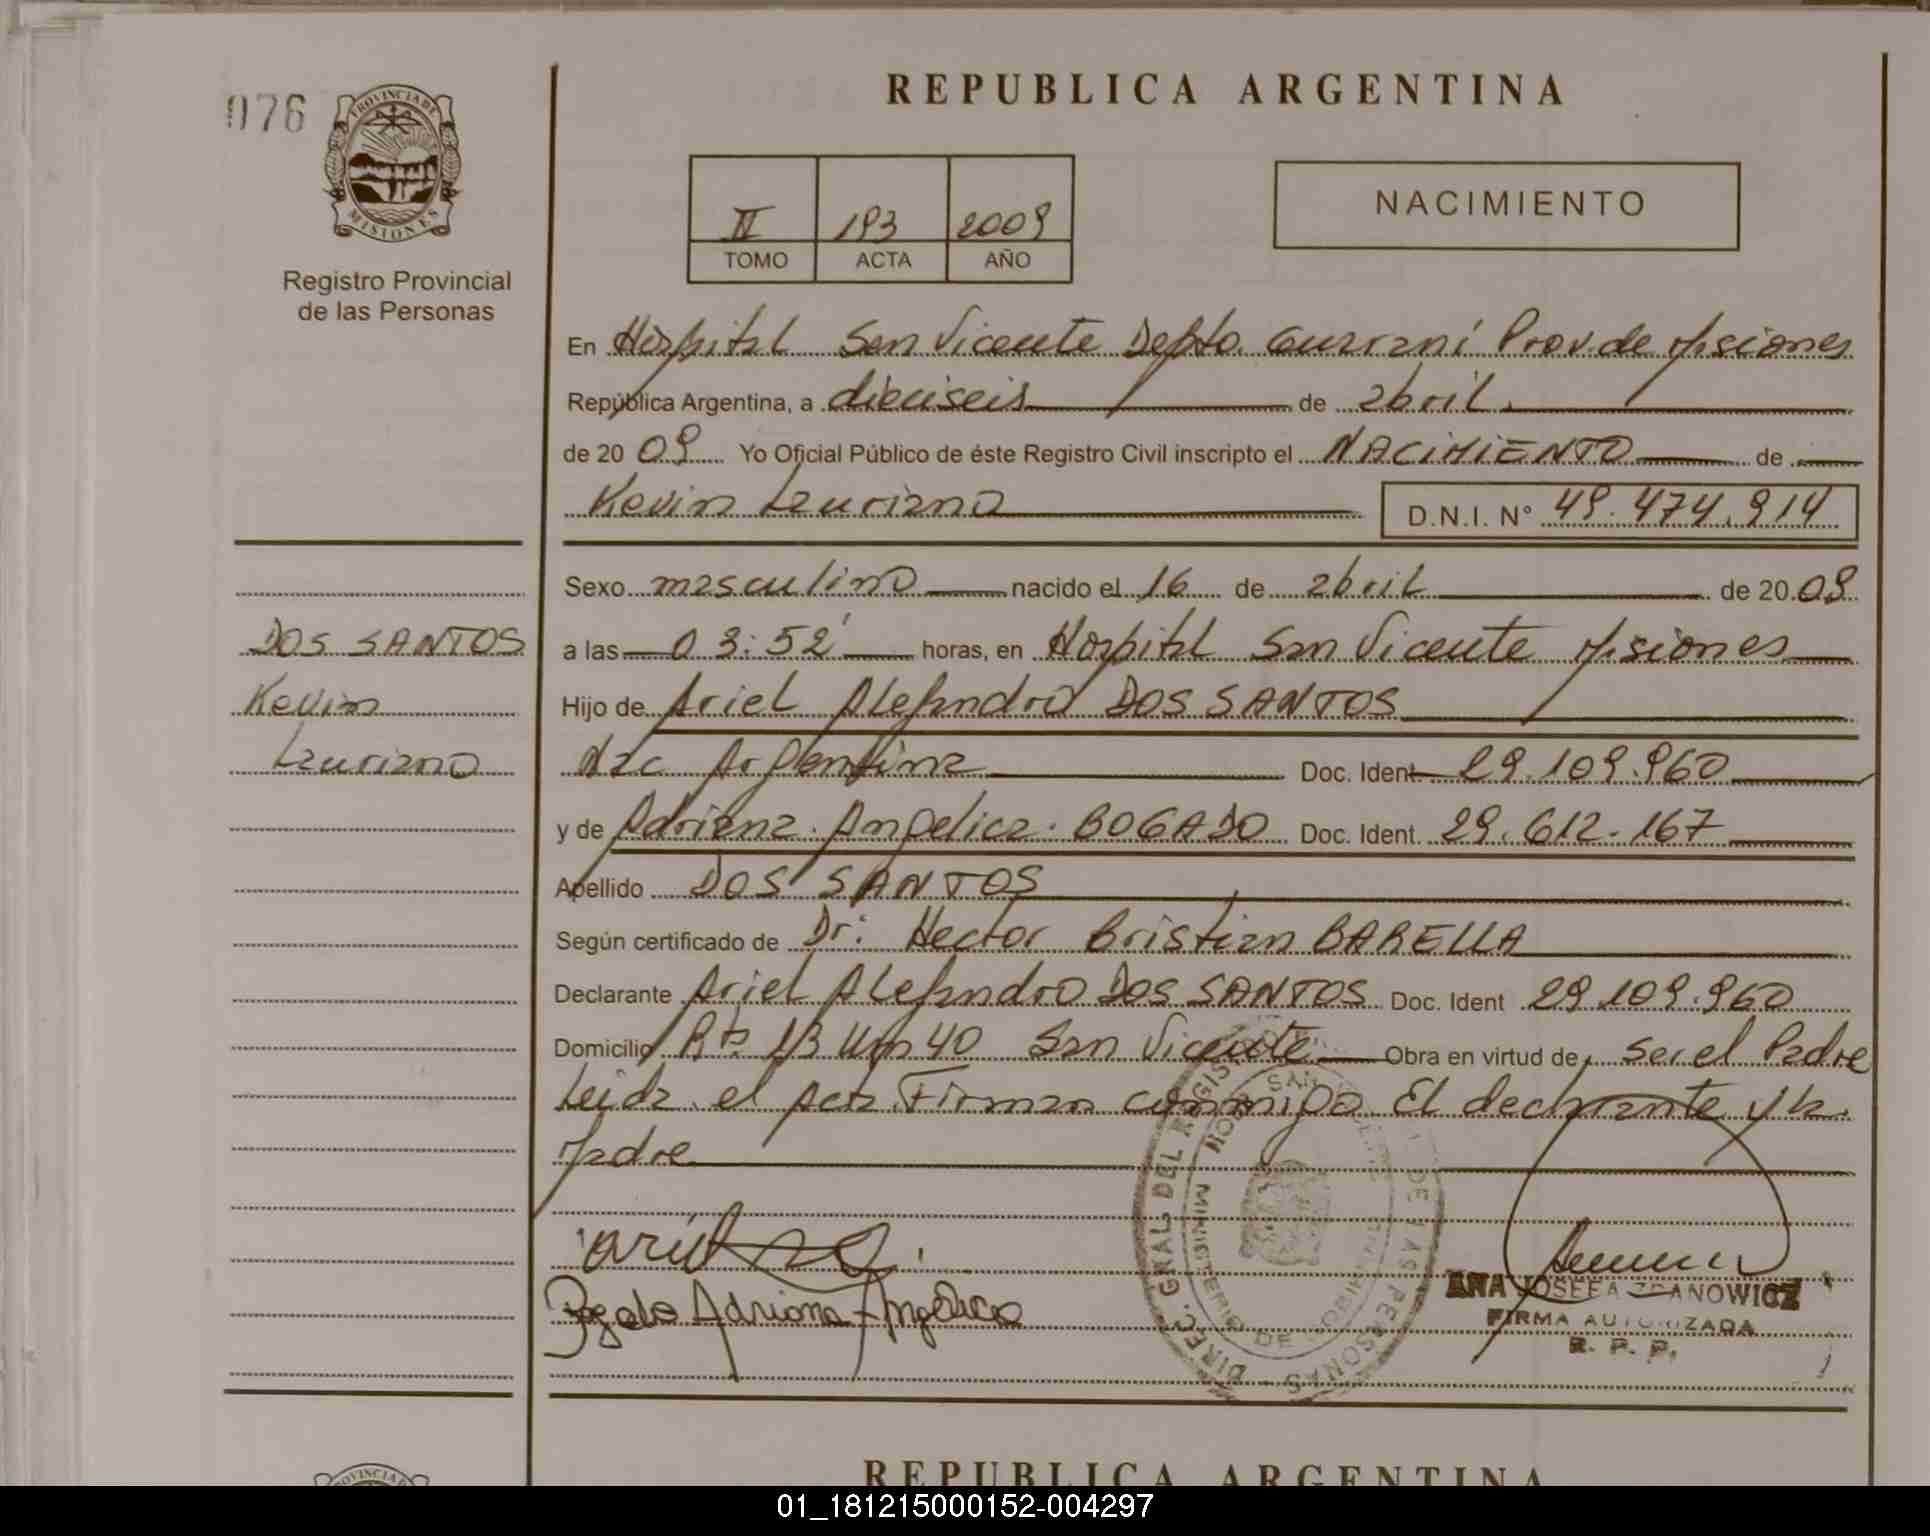 076
PROVINCIA DE
MISIONES
Registro Provincial
de las Personas
REPUBLICA ARGENTINA
II 193 2009
TOMO ACTA AÑO
NACIMIENTO
En Hospital San Vicente Depto. Guaraní Prov. de Misiones
República Argentina, a dieciseis de abril.
de 20 09 Yo Oficial Público de éste Registro Civil inscripto el NACIMIENTO de
Kevin Lauriano D.N.I. N° 49.474.914
Sexo masculino nacido el 16 de abril de 20 09
a las 03:52' horas, en Hospital San Vicente Misiones
Hijo de Ariel Alejandro DOS SANTOS
Nac Argentina Doc. Ident. 29.109.960
y de Adriana. Angelica. BOGADO Doc. Ident. 29.612.167
Apellido DOS SANTOS
Según certificado de Dr: Hector Cristian BARELLA
Declarante Ariel Alejandro DOS SANTOS Doc. Ident 29.109.960
Domicilio Rta. 13 Km 40 San Vicente Obra en virtud de, ser el Padre
Leida el acta Firman conmigo El declarante y la
Madre
DOS SANTOS
Kevin
Lauriano
Bogado Adriana Angelica
DIREC. GRAL. DEL REGISTRO DE LAS PERSONAS
MINISTERIO DE GOBIERNO
SAN
ANA JOSEFA
FIRMA AUTORIZADA
R. P. P.
PROVINCIA DE
REPUBLICA ARGENTINA
01_181215000152-004297